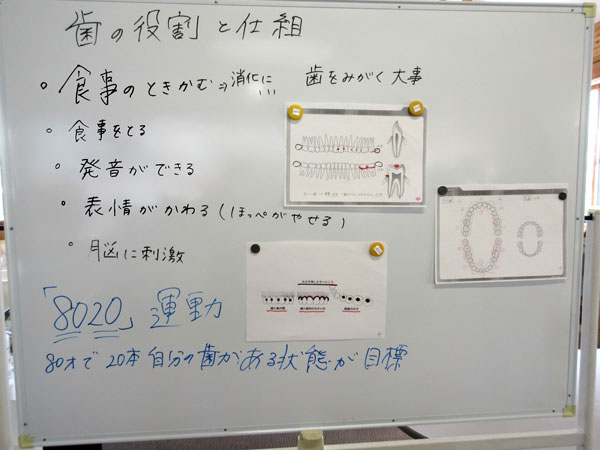 歯の役割と仕組
。食事のときかむ⇒消化に 歯をみがく大事
。食事をとる
。発音ができる
。表情がかわる(ほっぺがやせる)
。脳に刺激
「8020」運動
80才で20本自分の歯がある状態が目標